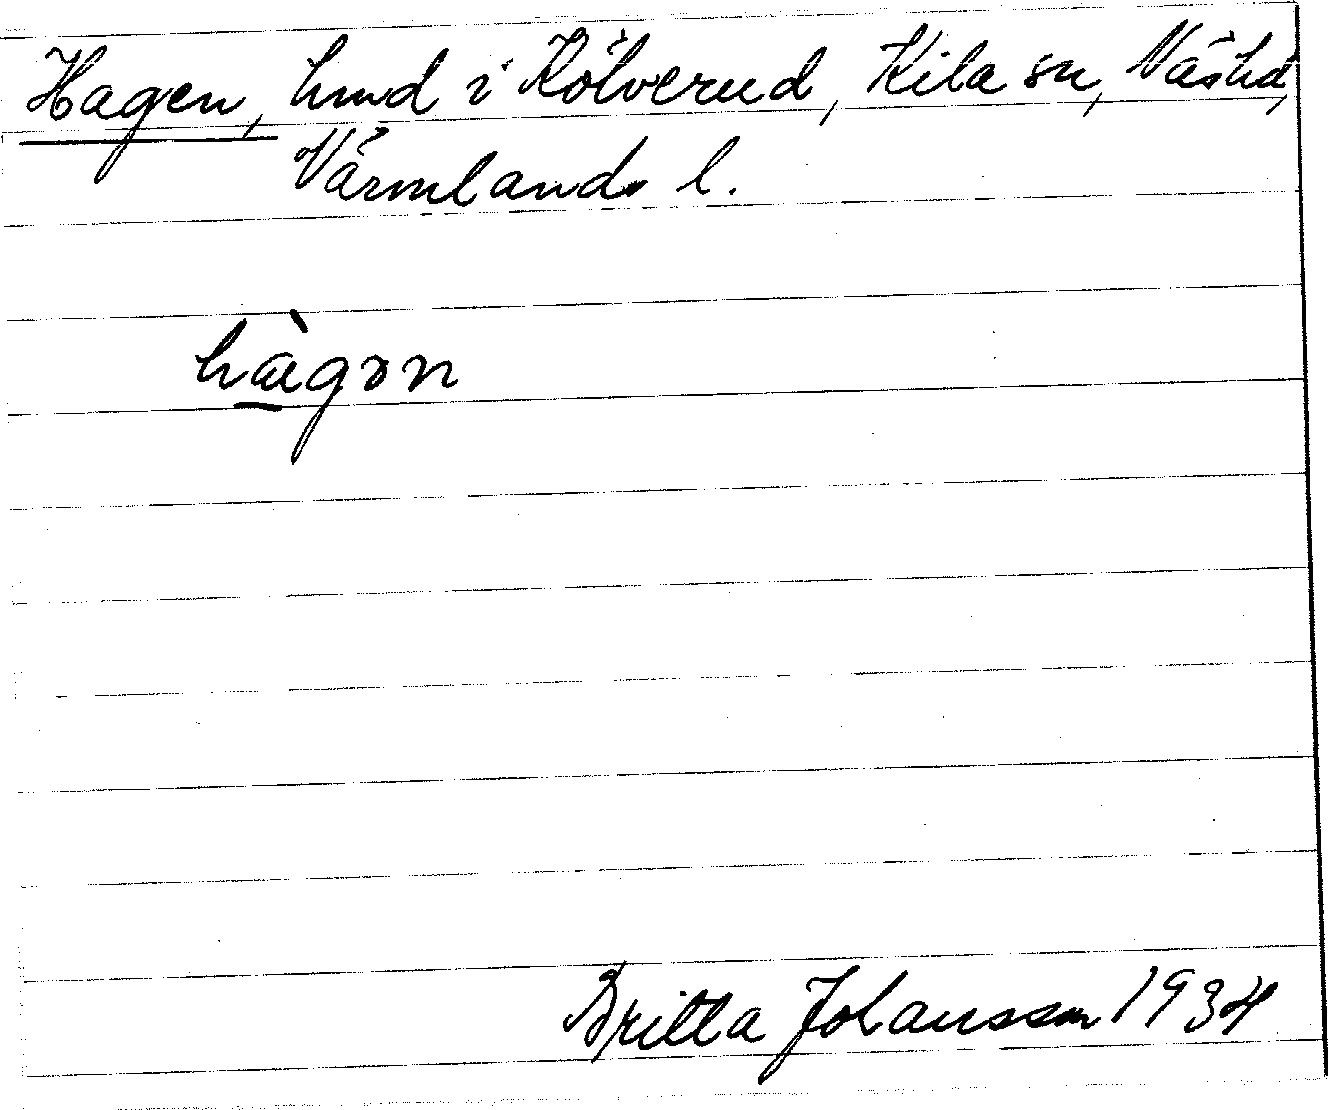 Hagen, hmd i Kölverud, Kila sn, Näs hd,
Värmlands l.
hàgən
Britta Johansson 1934